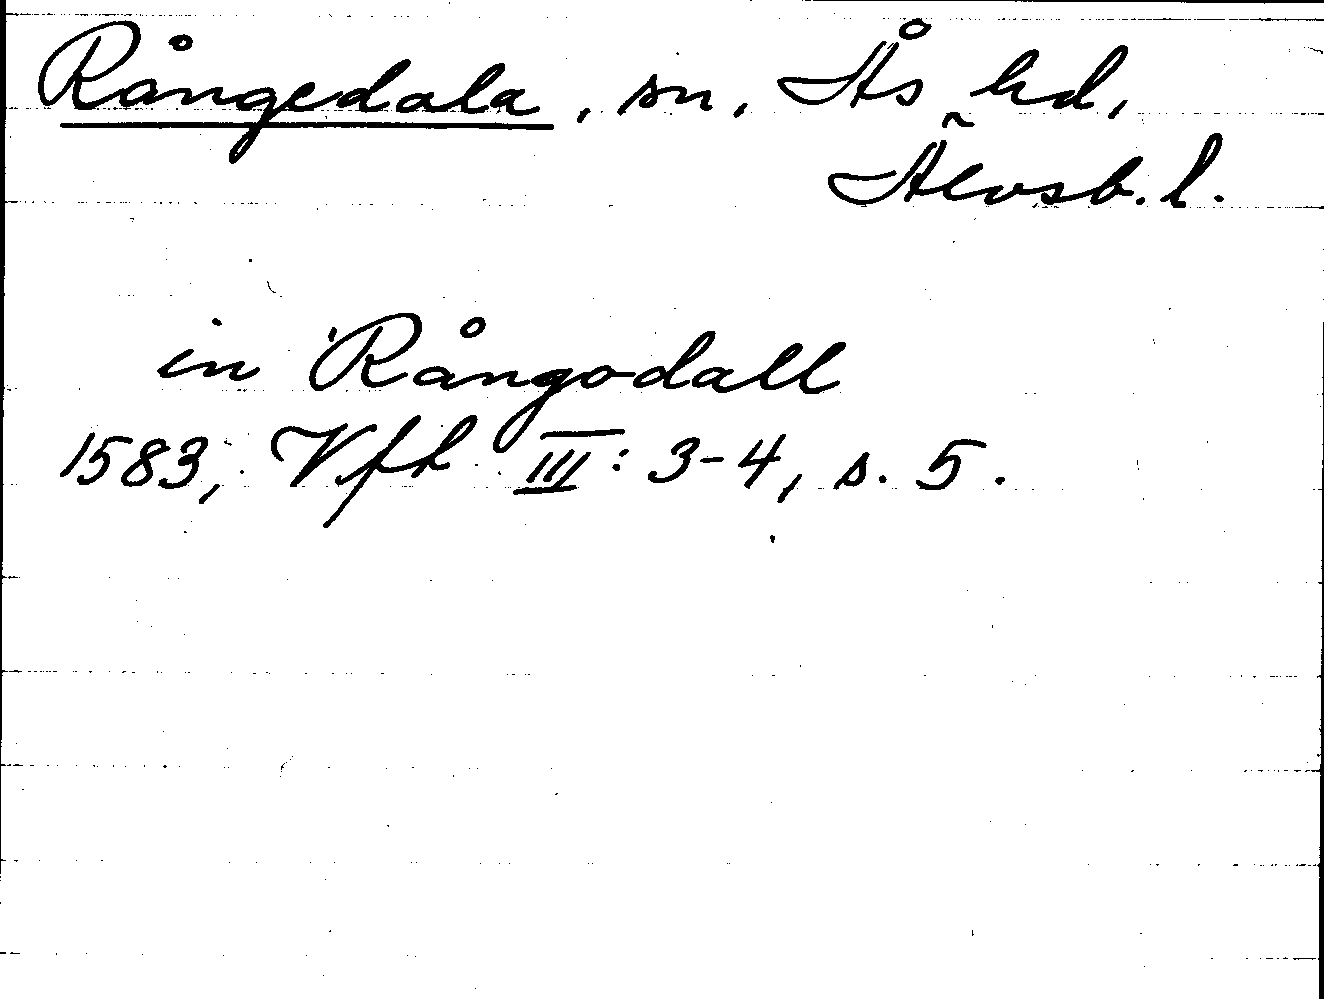 Rångedala, sn, Ås hd,
Älvsb. l.
in Rångodall
1583, Vft III: 3-4, s. 5.